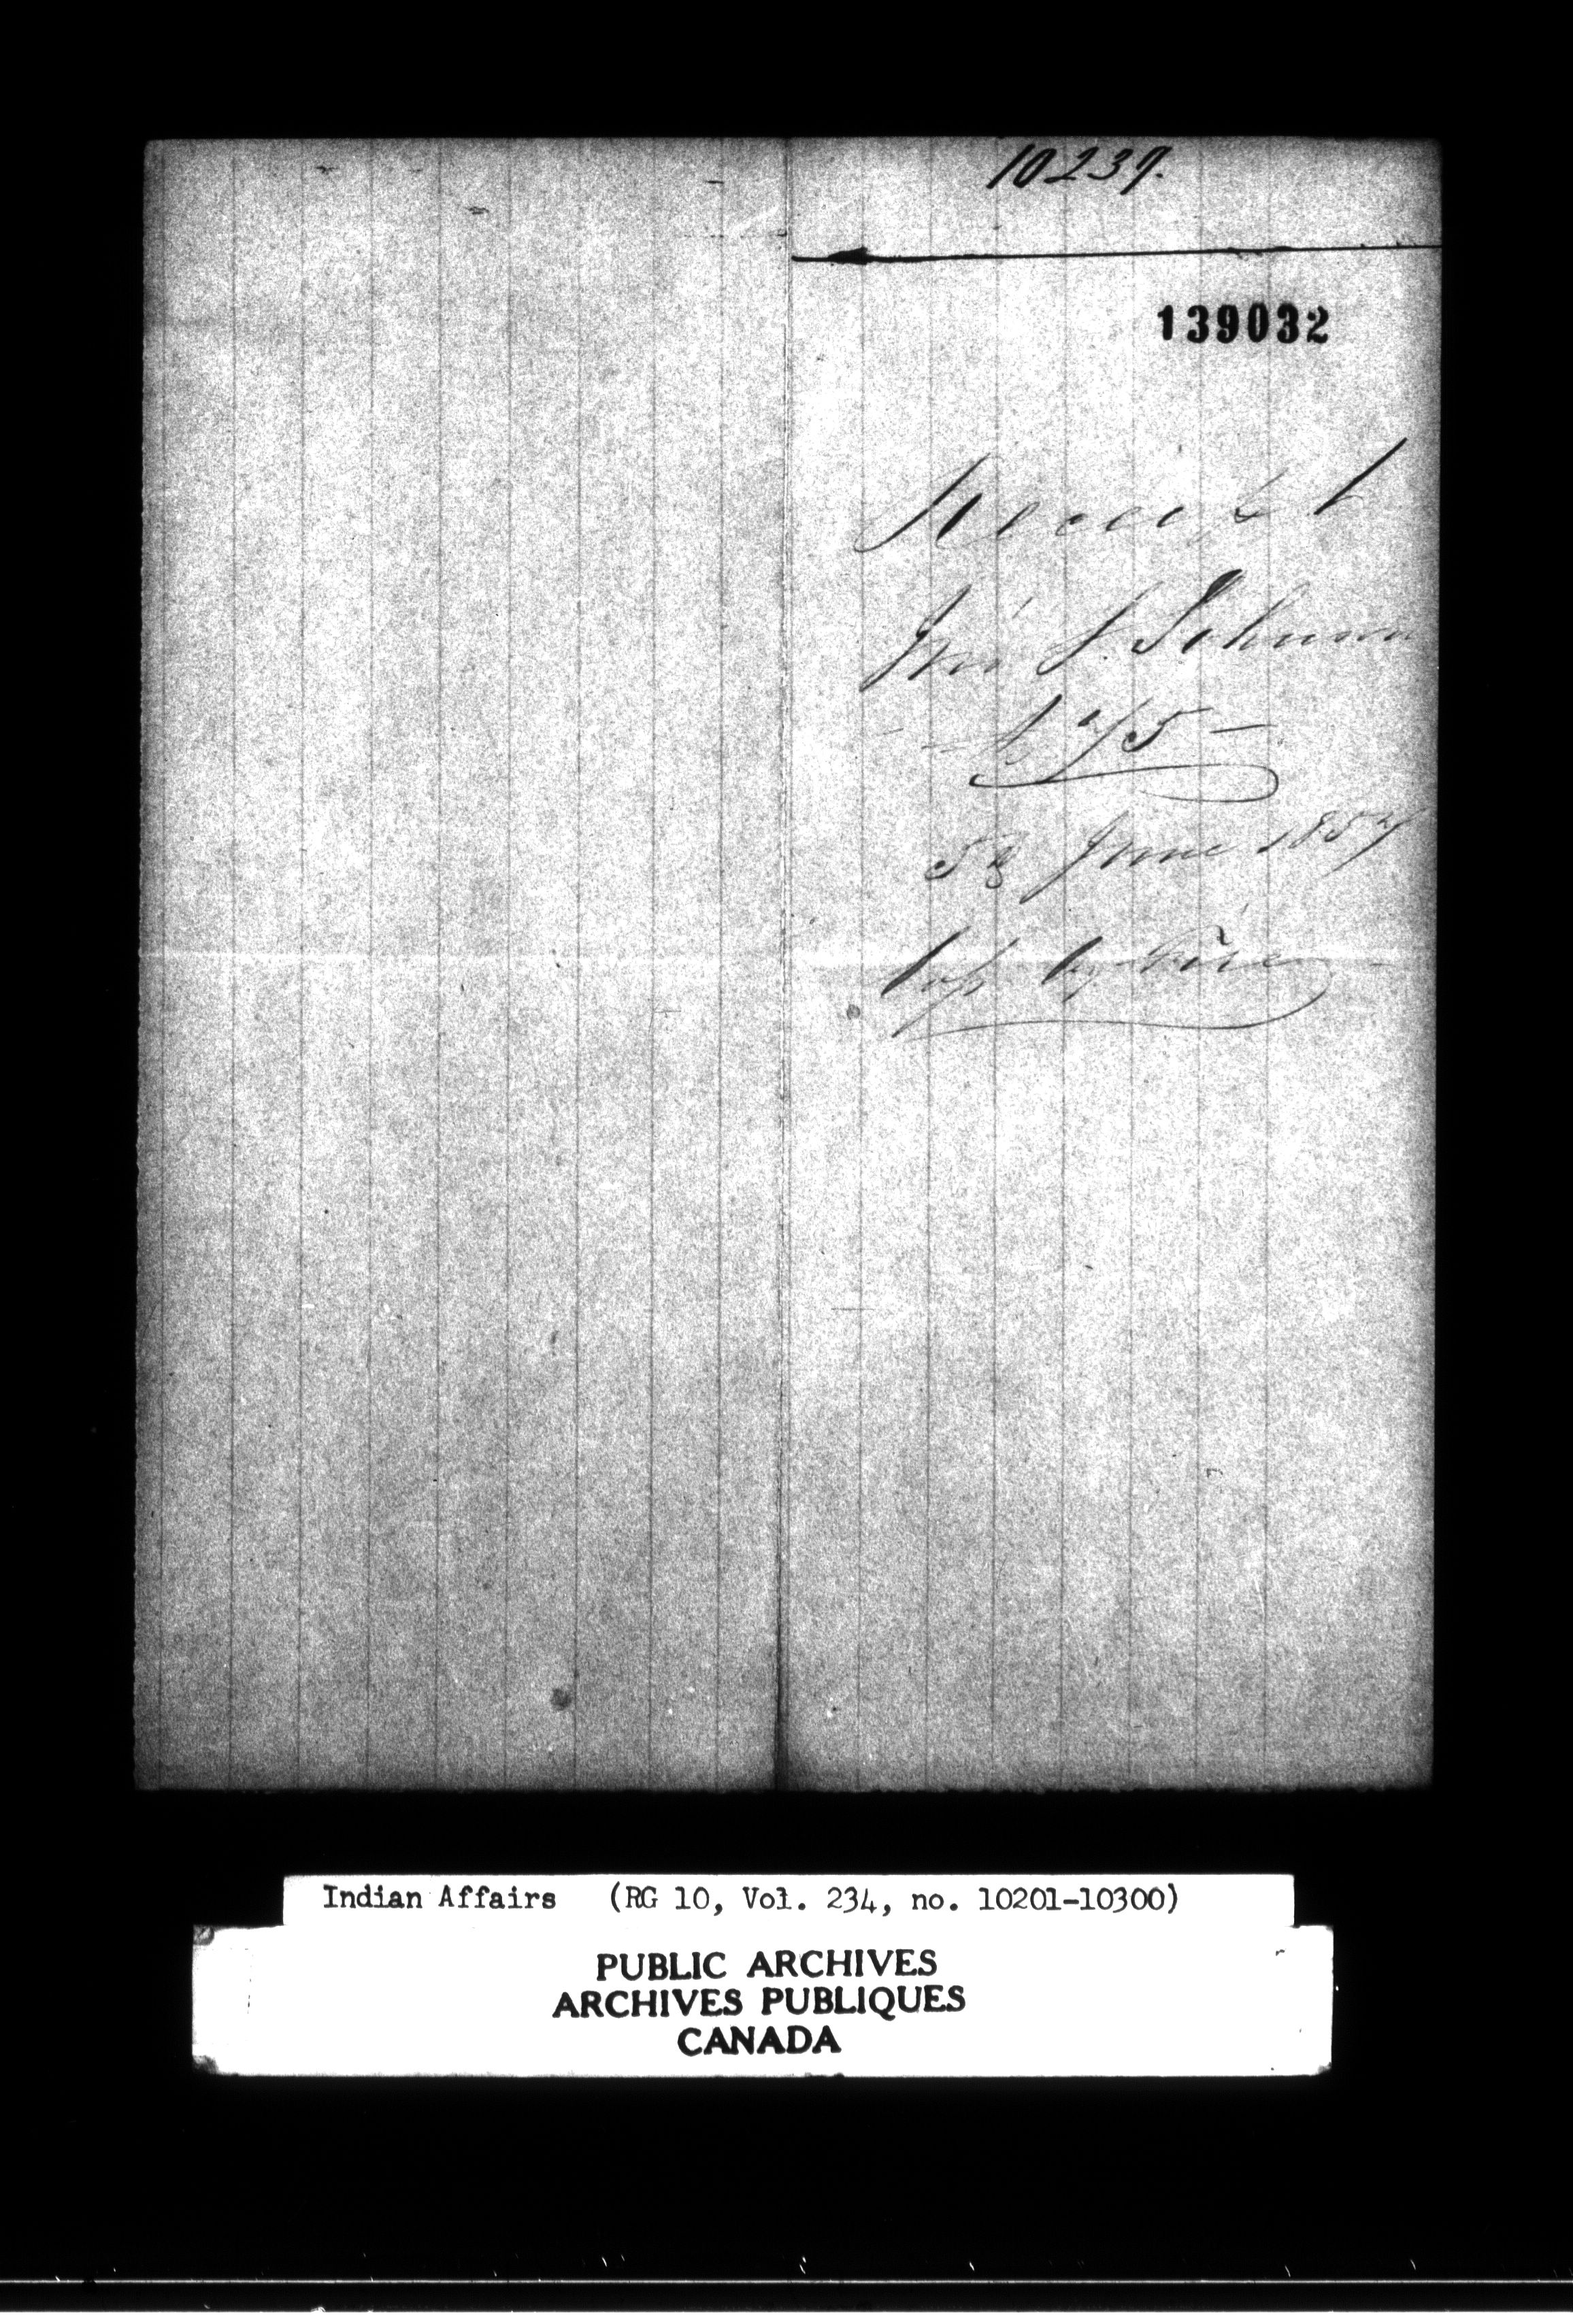 10237.
139032
Receipt
Jno S. Johnson
£75 –
5 June 1857
Indian Affairs (RG 10, Vol. 234, no. 10201-10300)
PUBLIC ARCHIVES
ARCHIVES PUBLIQUES
CANADA